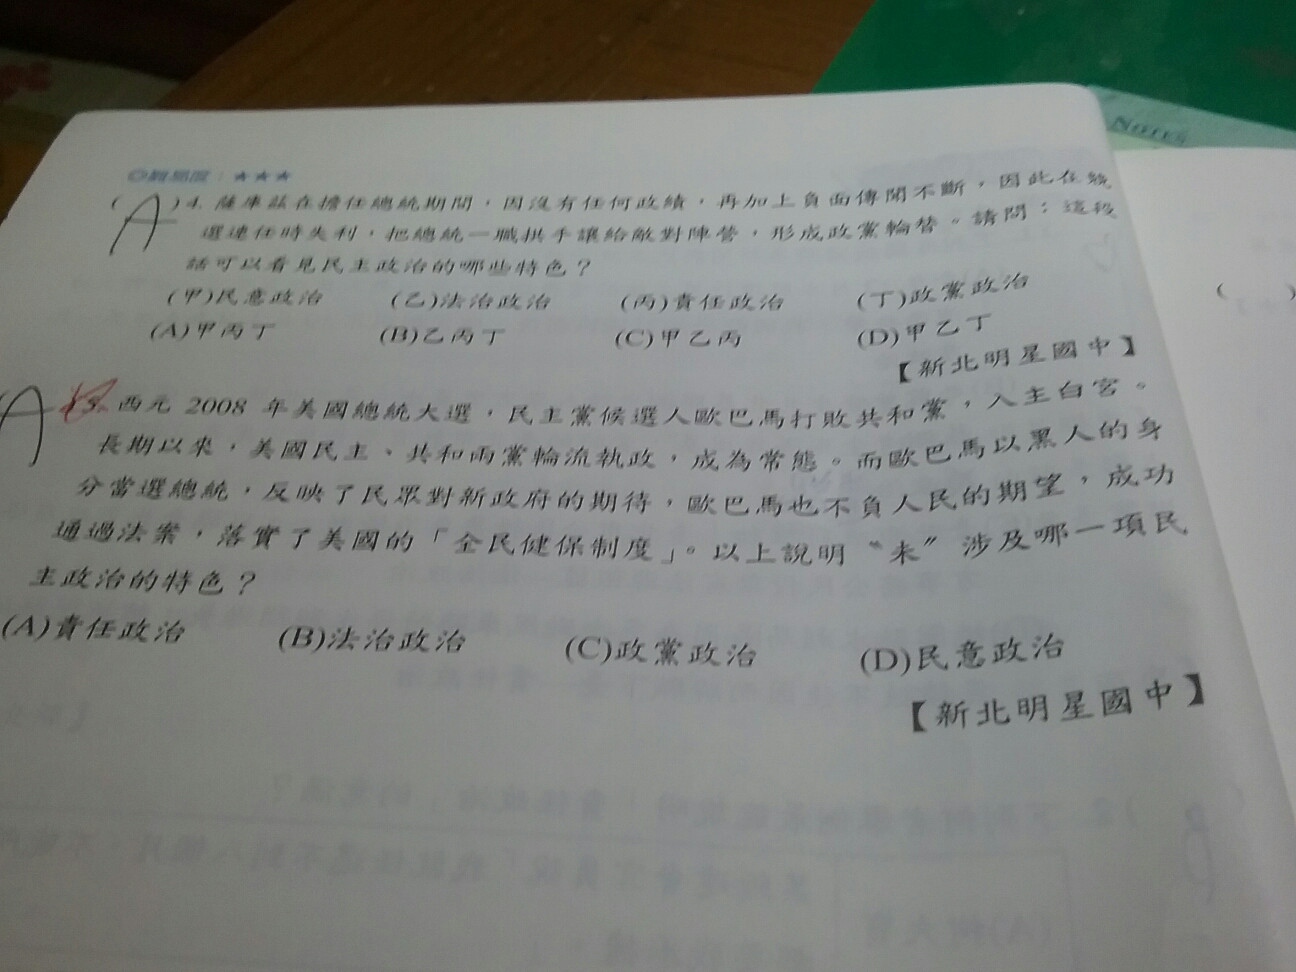 Notes
◎難易度：★★★
(A)4. 薩庫茲在擔任總統期間，因沒有任何政績，再加上負面傳聞不斷，因此在競
選連任時失利，把總統一職拱手讓給敵對陣營，形成政黨輪替。請問：這段
話可以看見民主政治的哪些特色？
(甲)民意政治 (乙)法治政治 (丙)責任政治 (丁)政黨政治
(A)甲丙丁 (B)乙丙丁 (C)甲乙丙 (D)甲乙丁
【新北明星國中】
A 5. 西元 2008 年美國總統大選，民主黨候選人歐巴馬打敗共和黨，入主白宮。
長期以來，美國民主、共和兩黨輪流執政，成為常態。而歐巴馬以黑人的身
分當選總統，反映了民眾對新政府的期待，歐巴馬也不負人民的期望，成功
通過法案，落實了美國的「全民健保制度」。以上說明〝未〞涉及哪一項民
主政治的特色？
(A)責任政治 (B)法治政治 (C)政黨政治 (D)民意政治
【新北明星國中】